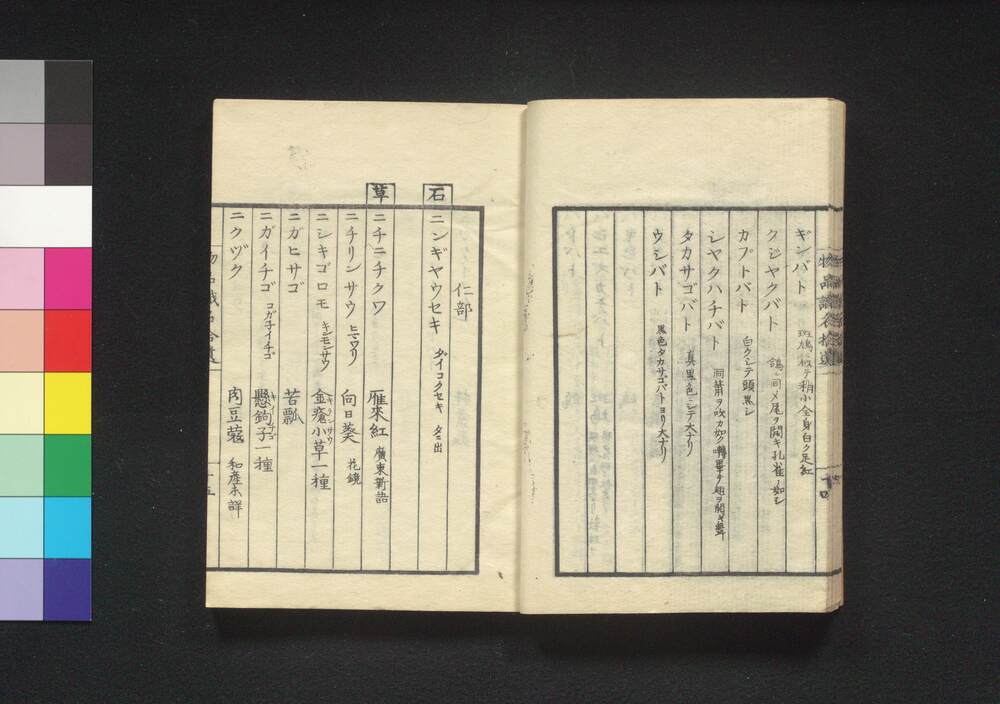 ギンバト 斑鳩ニ似テ稍小全身白ク足紅
クジヤクバト 鴿ニ同メ尾ヲ開キ孔雀ノ如シ
カブトバト 白クシテ頭黒シ
シヤクハチバト 洞簫ヲ吹カ如ク
タカサゴバト 真黒色ニシテ大ナリ
ウシバト 黒色タカサゴバトヨリ大ナリ
仁部
石 ニンギヤウセキ ダイコクセキ
草 ニチニチクワ 雁來紅 廣東新語
ニチリンサウ ヒマワリ 向日葵 花鏡
ニシキゴロモ キンモンサウ 金瘡小草一種
ニガヒサゴ 苦瓢
ニガイチゴ コガネイチゴ 懸鉤子一種
ニクヅク 肉豆蔲 和産未詳